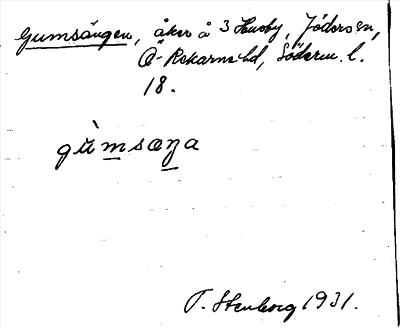 Gumsängen, åker å 3 Husby, Jäders sn,
Ö-Rekarne hd, Söderm. l.
18.
gùmsæŋa
T. Stenborg 1931.